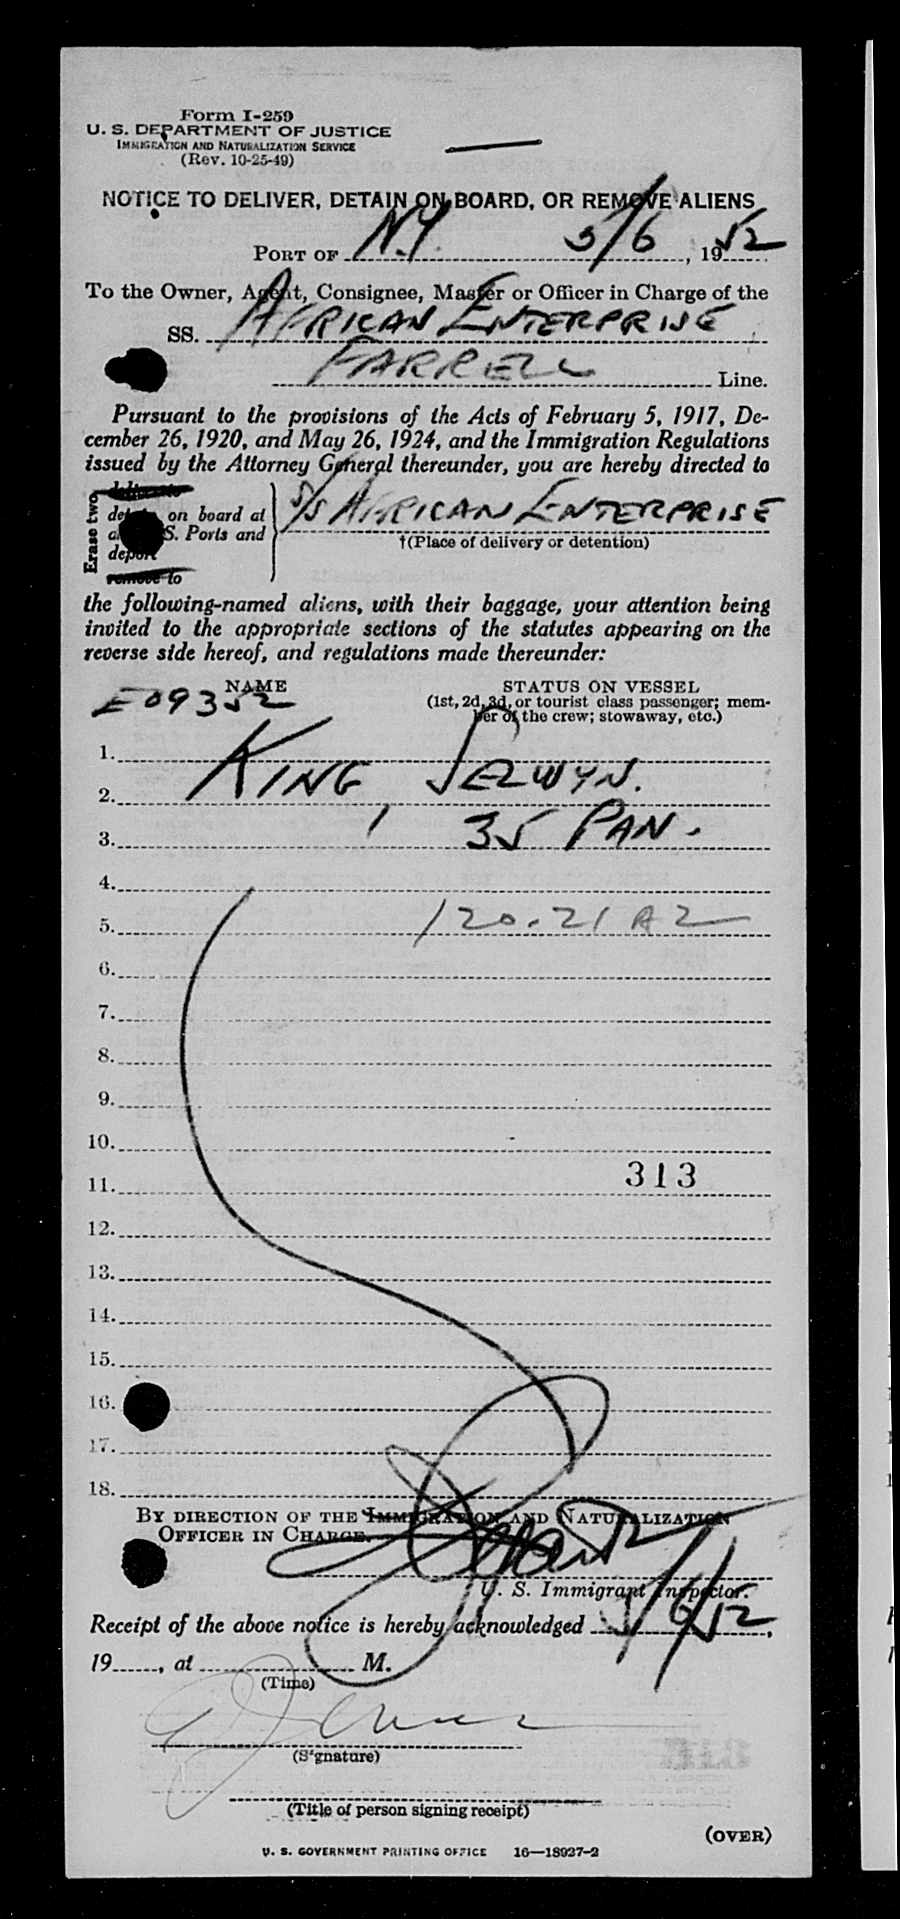 Form I-259
U. S. DEPARTMENT OF JUSTICE
IMMIGRATION AND NATURALIZATION SERVICE
(Rev. 10-25-49)
NOTICE TO DELIVER, DETAIN ON BOARD, OR REMOVE ALIENS
PORT OF N.Y. 5/6, 1952
To the Owner, Agent, Consignee, Master or Officer in Charge of the
SS. AFRICAN ENTERPRISE
FARRELL Line.
Pursuant to the provisions of the Acts of February 5, 1917, De-
cember 26, 1920, and May 26, 1924, and the Immigration Regulations
issued by the Attorney General thereunder, you are hereby directed to
Erase two
deliver to
detain on board at
S. Ports and
deport
remove to
S/S AFRICAN ENTERPRISE
†(Place of delivery or detention)
the following-named aliens, with their baggage, your attention being
invited to the appropriate sections of the statutes appearing on the
reverse side hereof, and regulations made thereunder:
NAME STATUS ON VESSEL
E09352 (1st, 2d, 3d, or tourist class passenger; mem-
ber of the crew; stowaway, etc.)
1.
KING, SELWYN.
2.
35 PAN.
3.
4.
120.21 A2
5.
6.
7.
8.
9.
10.
313
11.
12.
13.
14.
15.
16.
17.
18.
BY DIRECTION OF THE IMMIGRATION AND NATURALIZATION
OFFICER IN CHARGE.
U. S. Immigrant Inspector.
Receipt of the above notice is hereby acknowledged 5/6/52,
19, at M.
(Time)
(Signature)
(Title of person signing receipt)
(OVER)
U. S. GOVERNMENT PRINTING OFFICE 16—18927-2